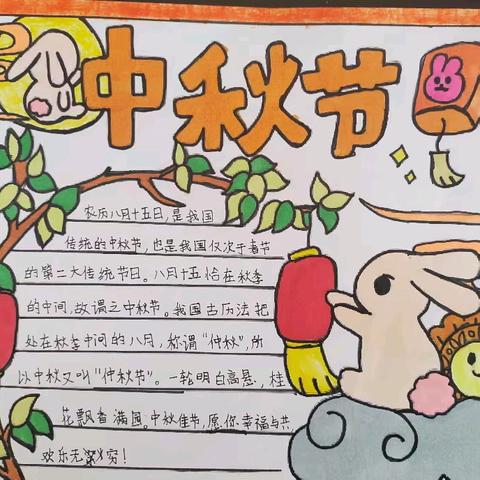 中秋节
农历八月十五日,是我国
传统的中秋节,也是我国仅次于春节
的第二大传统节日。八月十五恰在秋季
的中间,故谓之中秋节。我国古历法把
处在秋季中间的八月,称谓“仲秋”,所
以中秋又叫“仲秋节”。一轮明白高悬,桂
花飘香满园。中秋佳节,愿你幸福与共,
欢乐无穷!